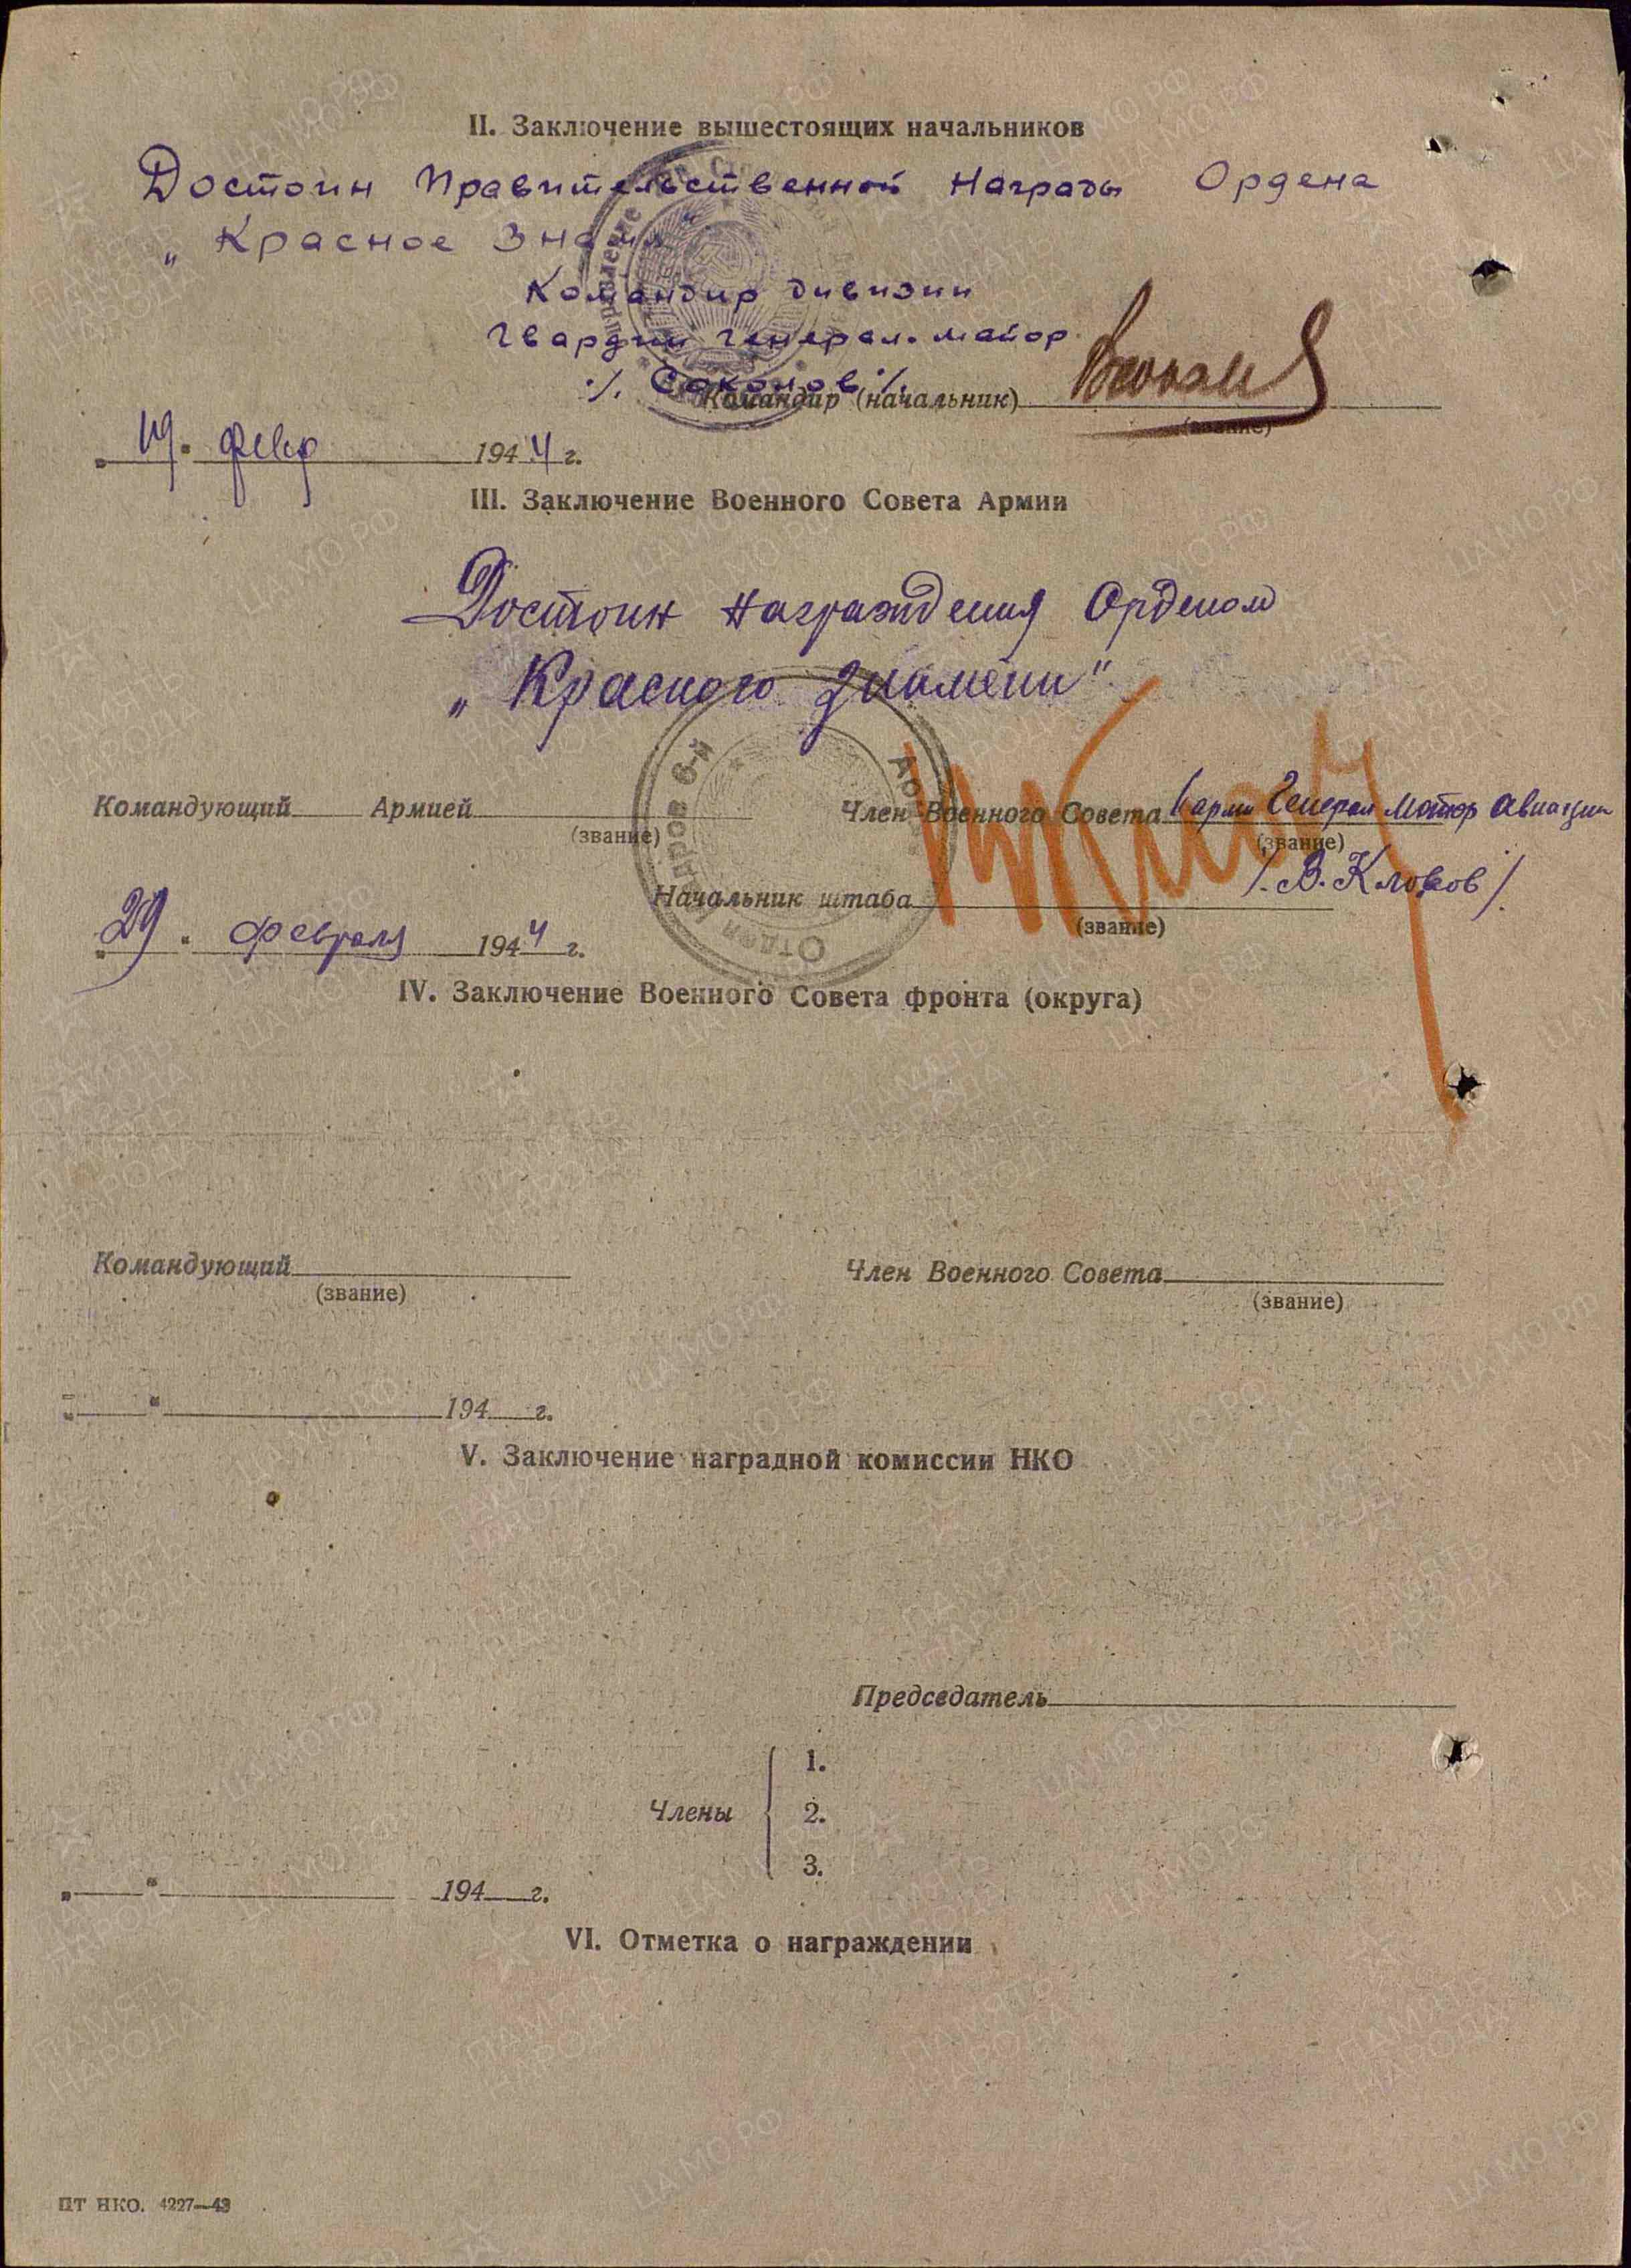 II. Заключение вышестоящих начальников
Достоин Правительственной Награды Ордена
„Красное Знамя"
Командир дивизии
Гвардии генерал-майор
/. Соколов /.
Командир (начальник)
(звание)
„19" февр 1944 г.
III. Заключение Военного Совета Армии
Достоин награждения Орденом
„Красного Знамени"
Командующий Армией
(звание)
Член Военного Совета Армии Генерал Майор Авиации
(звание)
/. В. Клоков /.
Начальник штаба
(звание)
„29" февраля 1944 г.
IV. Заключение Военного Совета фронта (округа)
Командующий
(звание)
Член Военного Совета
(звание)
„ " 194 г.
V. Заключение наградной комиссии НКО
Председатель
Члены
1.
2.
3.
„ " 194 г.
VI. Отметка о награждении
ЦТ НКО. 4227—43
ПАМЯТЬ НАРОДА
ЦА МО РФ